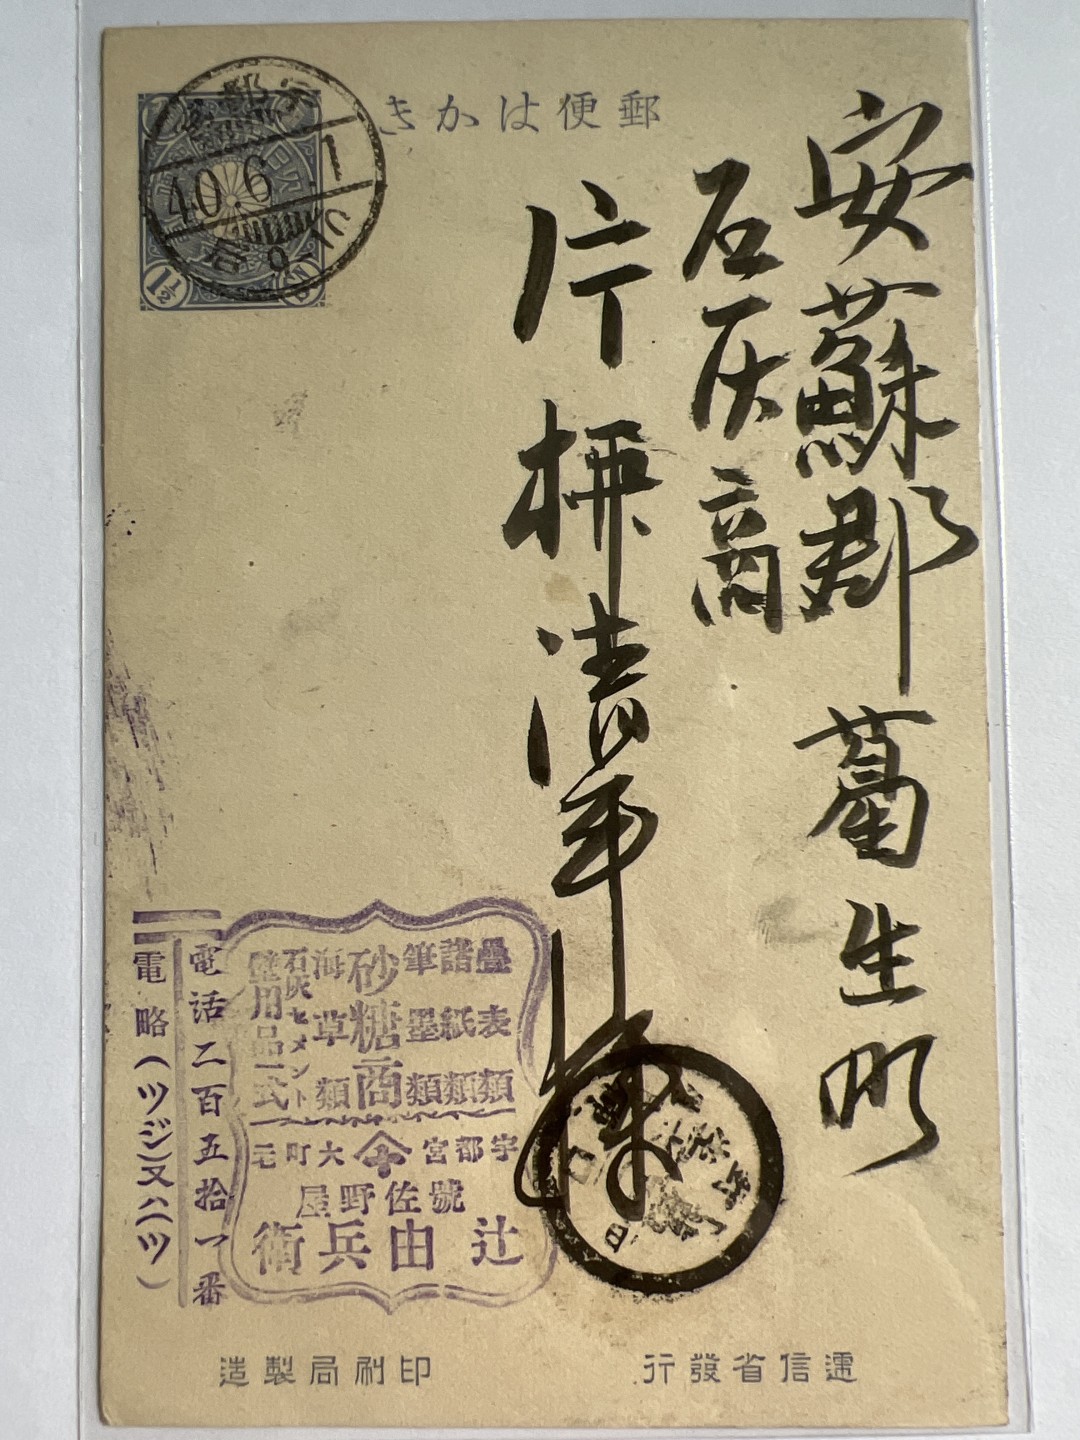 郵便はかき
1½ SN
宇都宮
40.6.1
安蘇郡葛生町
石灰商
片栁清平様
疊表類
諸紙類
筆墨類
砂糖商
海草類
石灰セメント
壁用品一式
宇都宮大町元
號佐野屋
辻由兵衛
電話二百五拾一番
電略(ツジ)又ハ(ツ)
遞信省發行
印刷局製造